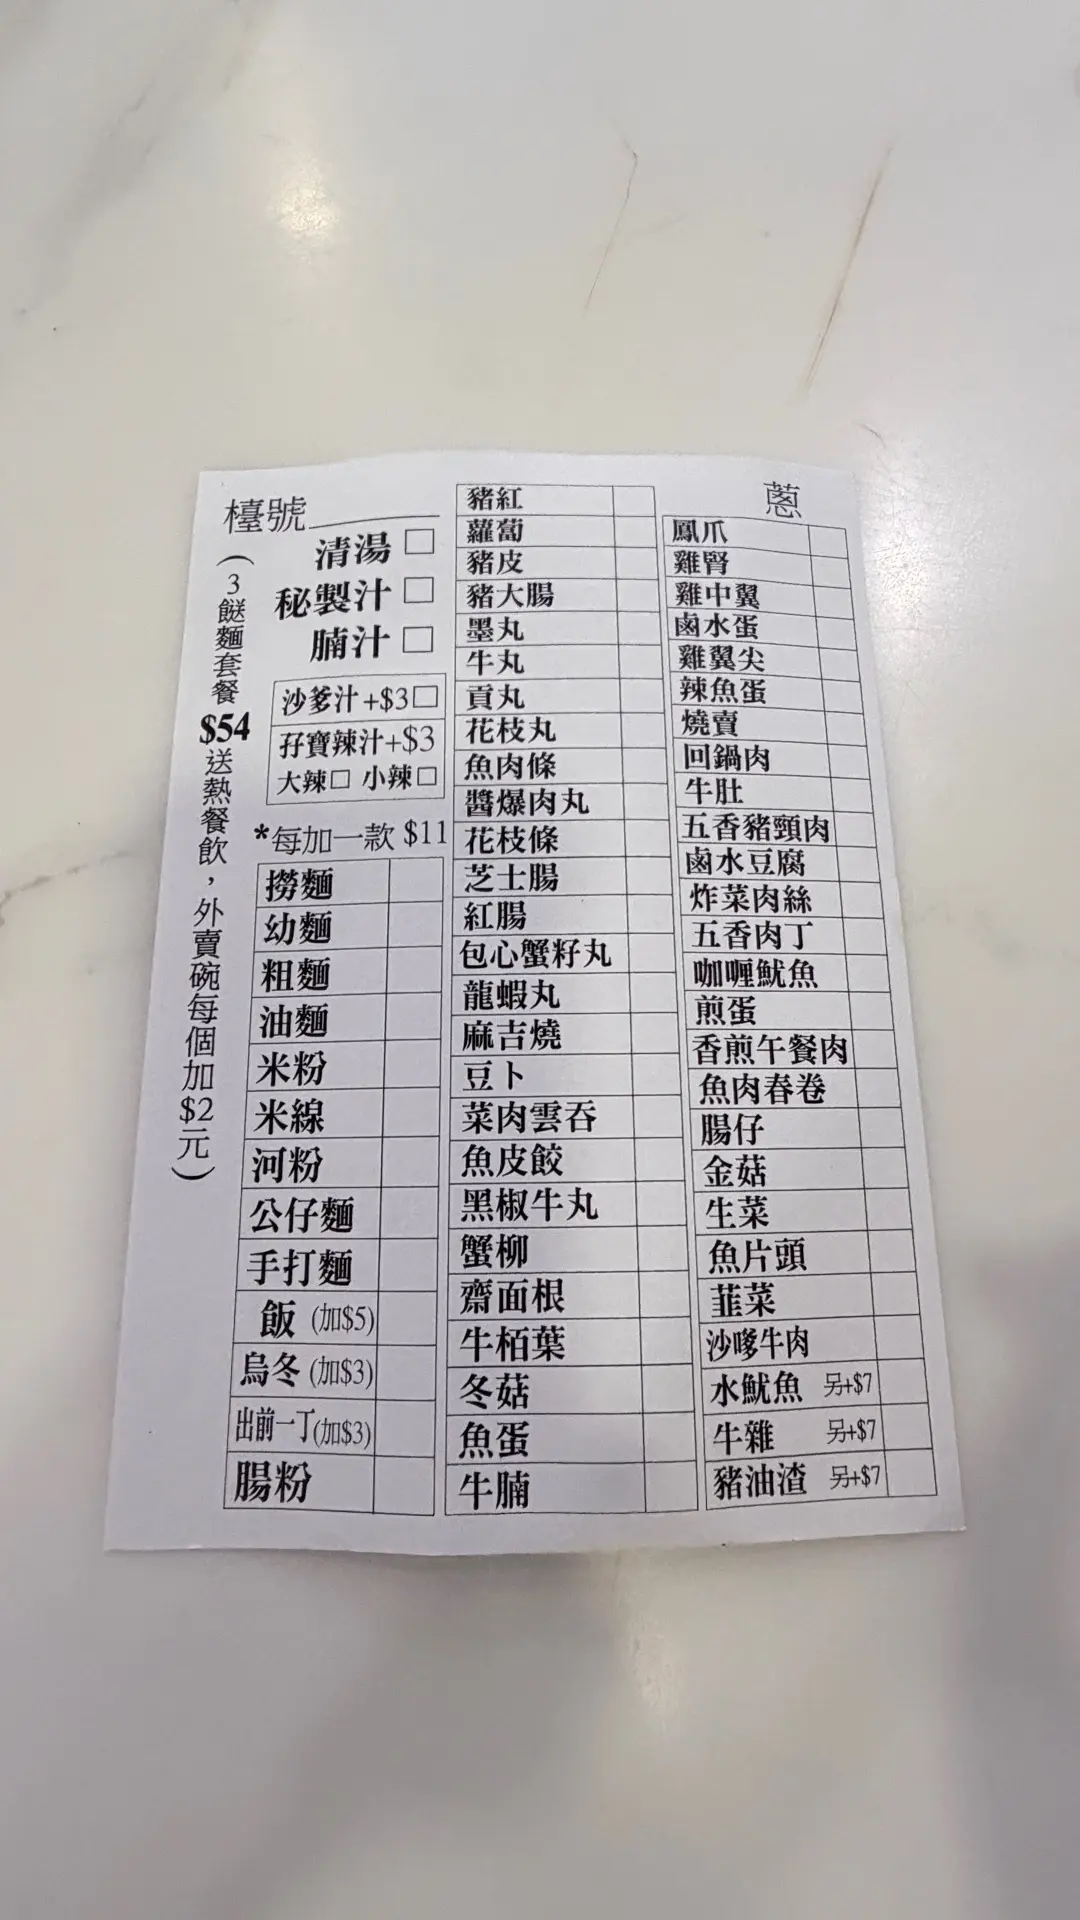 檯號
(3餸麵套餐$54送熱餐飲，外賣碗每個加$2元)
清湯
秘製汁
腩汁
沙爹汁+$3
孖寶辣汁+$3
大辣 小辣
*每加一款 $11
撈麵
幼麵
粗麵
油麵
米粉
米線
河粉
公仔麵
手打麵
飯 (加$5)
烏冬 (加$3)
出前一丁(加$3)
腸粉
豬紅
蘿蔔
豬皮
豬大腸
墨丸
牛丸
貢丸
花枝丸
魚肉條
醬爆肉丸
花枝條
芝士腸
紅腸
包心蟹籽丸
龍蝦丸
麻吉燒
豆卜
菜肉雲吞
魚皮餃
黑椒牛丸
蟹柳
齋面根
牛栢葉
冬菇
魚蛋
牛腩
蔥
鳳爪
雞腎
雞中翼
鹵水蛋
雞翼尖
辣魚蛋
燒賣
回鍋肉
牛肚
五香豬頸肉
鹵水豆腐
炸菜肉絲
五香肉丁
咖喱魷魚
煎蛋
香煎午餐肉
魚肉春卷
腸仔
金菇
生菜
魚片頭
韮菜
沙嗲牛肉
水魷魚 另+$7
牛雜 另+$7
豬油渣 另+$7